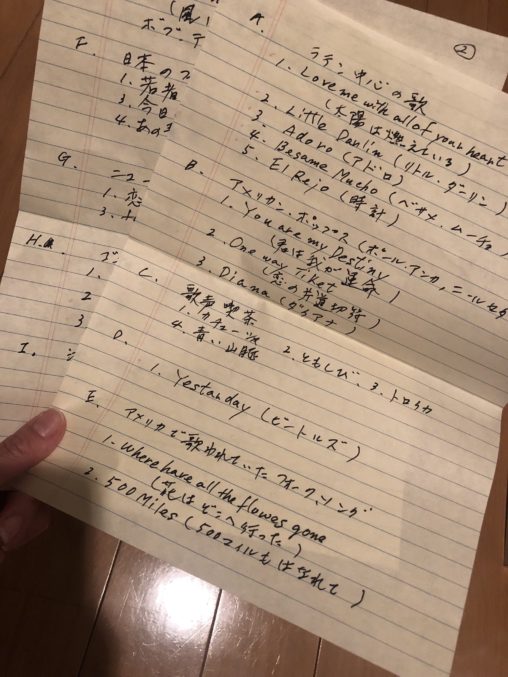 ②
A. ラテン中心の歌
1. Love me with all of your heart
(太陽は燃えている)
2. Little Darlin (リトル・ダーリン)
3. Adoro (アドロ)
4. Besame Mucho (ベサメ・ムーチョ)
5. El Rejo (時計)
B. アメリカン・ポップス (ポールアンカ, ニールセダ
1. You are my Destiny
(君は我が運命)
2. One way Ticket
(恋の片道切符)
3. Diana (ダイアナ)
C. 歌声喫茶
1. カチューシャ 2. ともしび、3. トロイカ
4. 青い山脈
D.
1. Yestarday (ビートルズ)
E. アメリカで歌われていたフォークソング
1. Where have all the flowes gone
(花はどこへ行った)
2. 500 Miles (500マイルもはなれて)
(風
ボブ・デ
F. 日本のフ
1. 若者
3. 今日
4. あの
G. ニュー
1. 恋
3.
H.
1.
2
3
I.